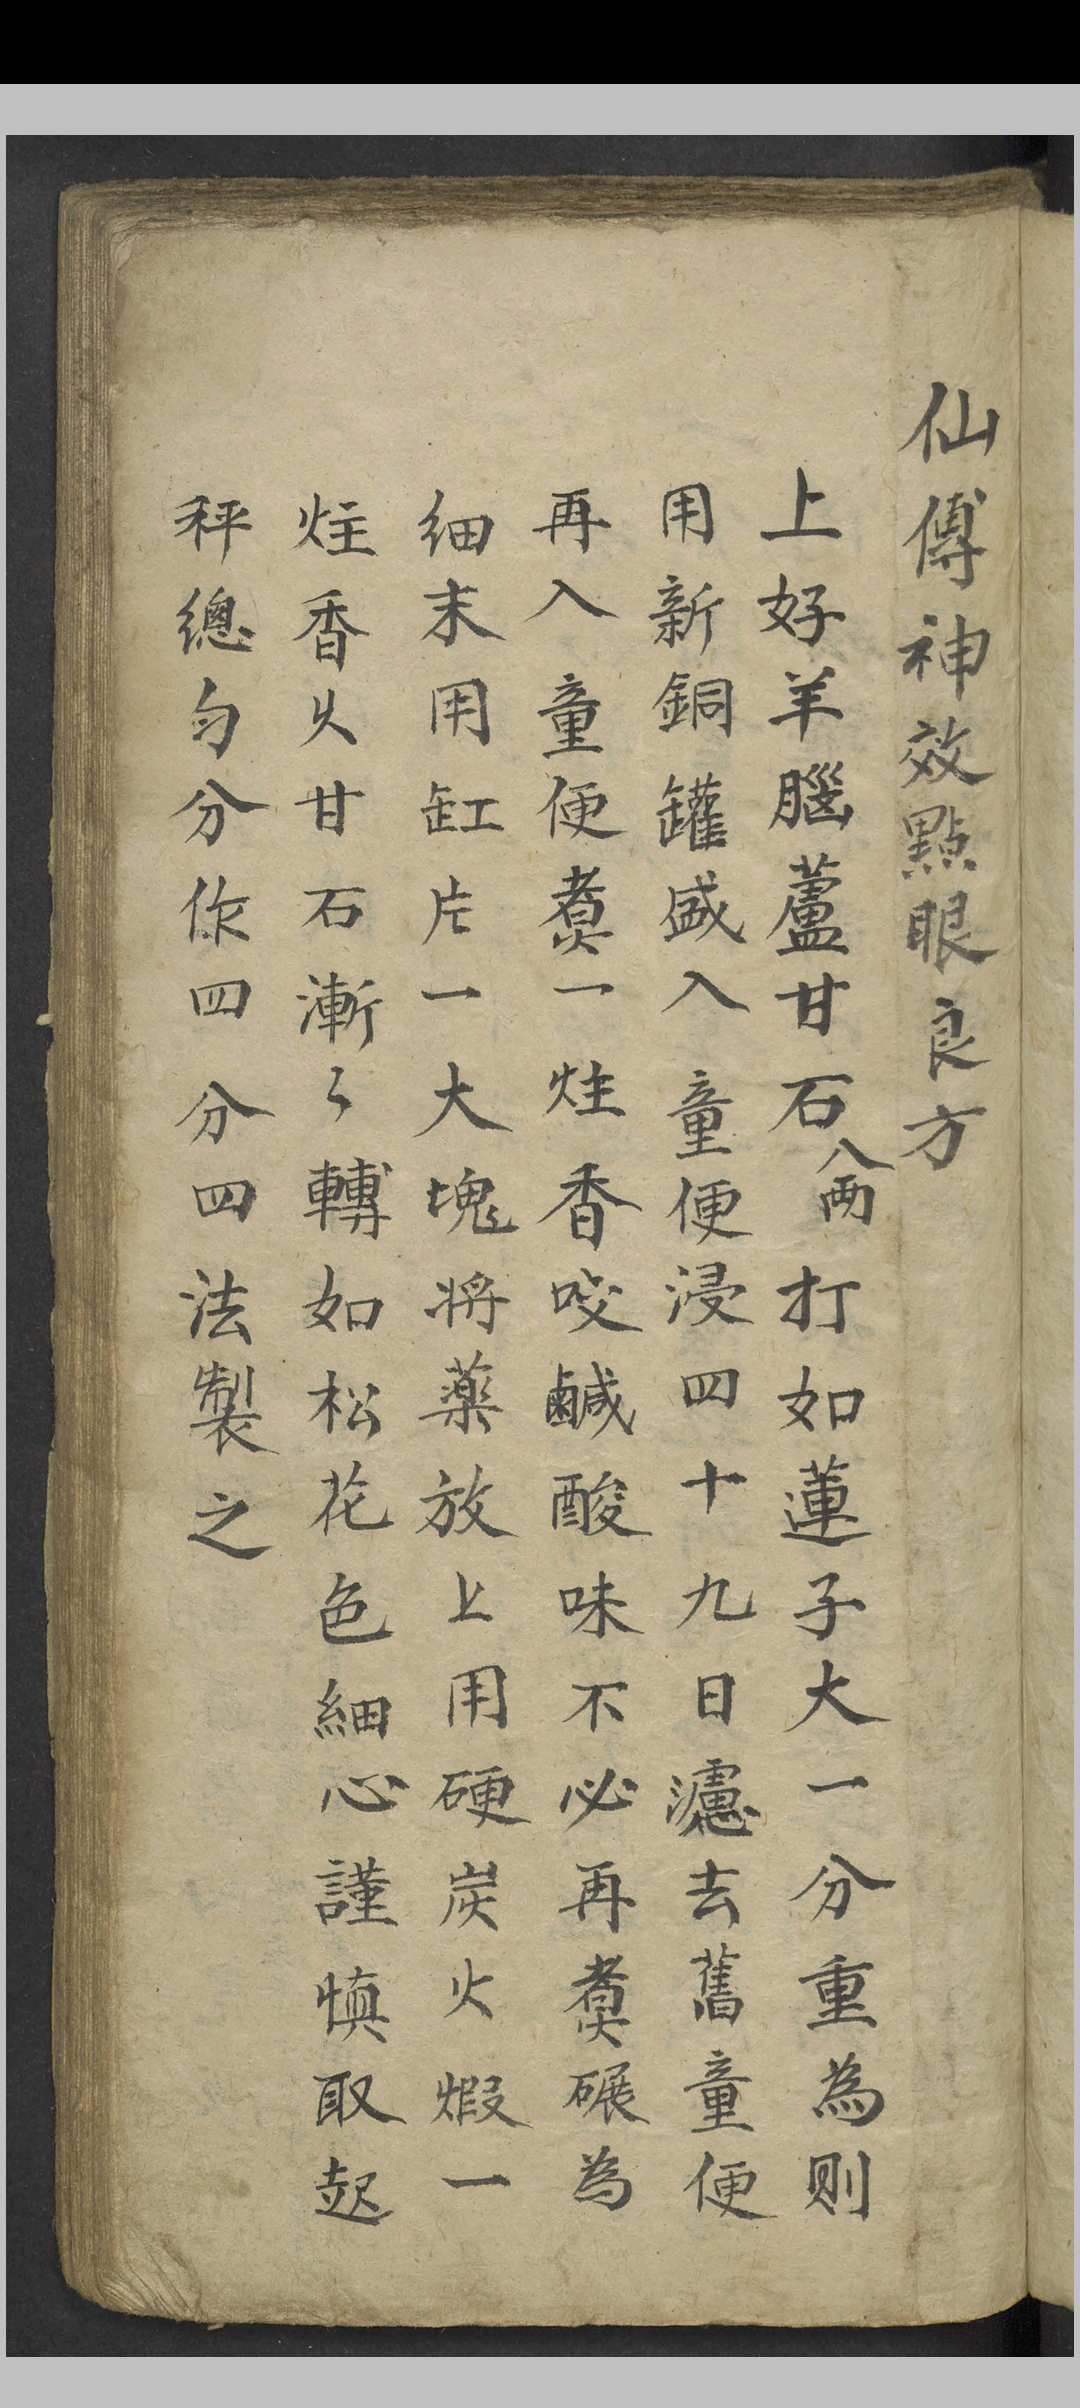 仙傳神效點眼良方
上好羊腦蘆甘石八兩打如蓮子大一分重為則
用新銅罐盛入童便浸四十九日濾去舊童便
再入童便煑一炷香咬鹹酸味不必再煑碾為
细末用缸片一大塊将藥放上用硬炭火煆一
炷香久甘石漸々轉如松花色細心謹慎取起
秤總勻分作四分四法製之